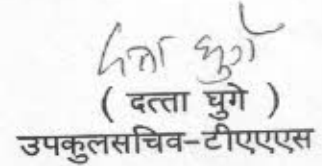 दत्ता घुगे
( दत्ता घुगे )
उपकुलसचिव-टीएएएस